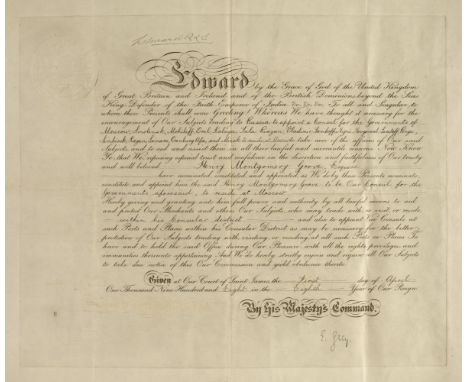 Edward R & I
Edward by the Grace of God of the United Kingdom
of Great Britain and Ireland and of the British Dominions beyond the Seas
King Defender of the Faith Emperor of India &c. &c. &c. To all and Singular, to
whom these Presents shall come Greeting! Whereas We have thought it necessary for the
encouragement of Our Subjects trading to Russia to appoint a Consul for the Governments of
Moscow,
and to aid and assist them in all their lawful and mercantile concerns Now Know
Ye that We reposing especial trust and confidence in the discretion and faithfulness of Our trusty
and well beloved Henry Montgomery Grove Esquire
have nominated constituted and appointed as We do by these Presents nominate,
constitute and appoint him the said Henry Montgomery Grove to be Our Consul for the
Governments aforesaid, to reside at Moscow
Hereby giving and granting unto him full power and authority by all lawful means to aid
and protect Our Merchants and others Our Subjects who may trade with or visit or reside
within his Consular District and also to appoint Vice Consuls at
such Ports and Places within his Consular District as may be necessary for the better
protection of Our Subjects trading with residing or at such Ports or Places To
have and to hold the said Office during Our Pleasure with all the rights privileges and
immunities thereunto appertaining And We do hereby strictly enjoin and require all Our Subjects
to take due notice of this Our Commission and yield obedience thereto
Given at Our Court of Saint James the First day of April
One Thousand Nine Hundred and Eight in the Eighth Year of Our Reign
By His Majesty's Command.
E. Grey